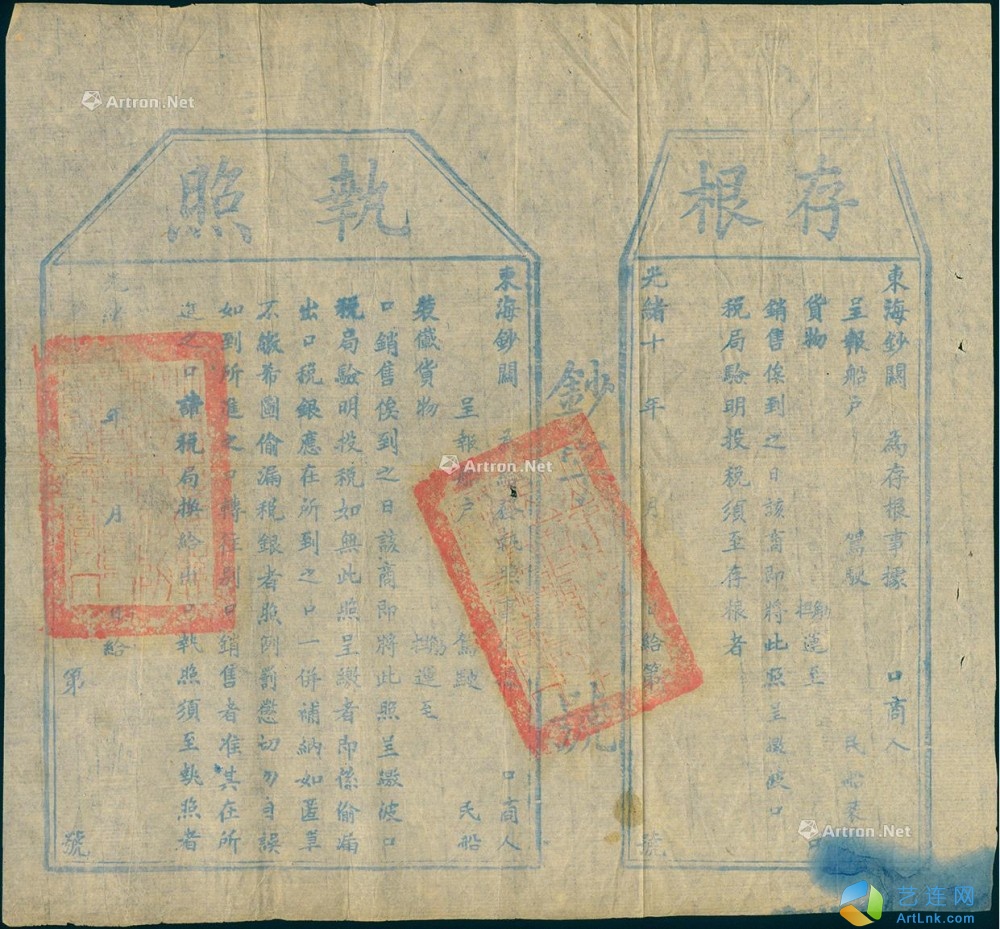 存根
東海鈔關 為存根事據 口商人
呈報船戶 駕駛 民船裝
貨物 運至 口
銷售俟到之日該商即將此照呈繳彼口
稅局驗明投稅須至存根者
光緒十 年 月 日給第 號
鈔 字 號
執照
東海鈔關 執照事 口商人
呈報船戶 駕駛 民船
裝儎貨物 運至
口銷售俟到之日該商即將此照呈繳彼口
稅局驗明投稅如無此照呈繳者即係偷漏
出口稅銀應在所到之口一併補納如匿單
不繳希圖偷漏稅銀者照例罰懲切勿自誤
如到所進之口轉往別口銷售者准其在所
進之口請稅局換給 口執照須至執照者
光緒 年 月 日給
第 號
Artron.Net
Artron.Net
Artron.Net
艺连网
ArtLnk.com